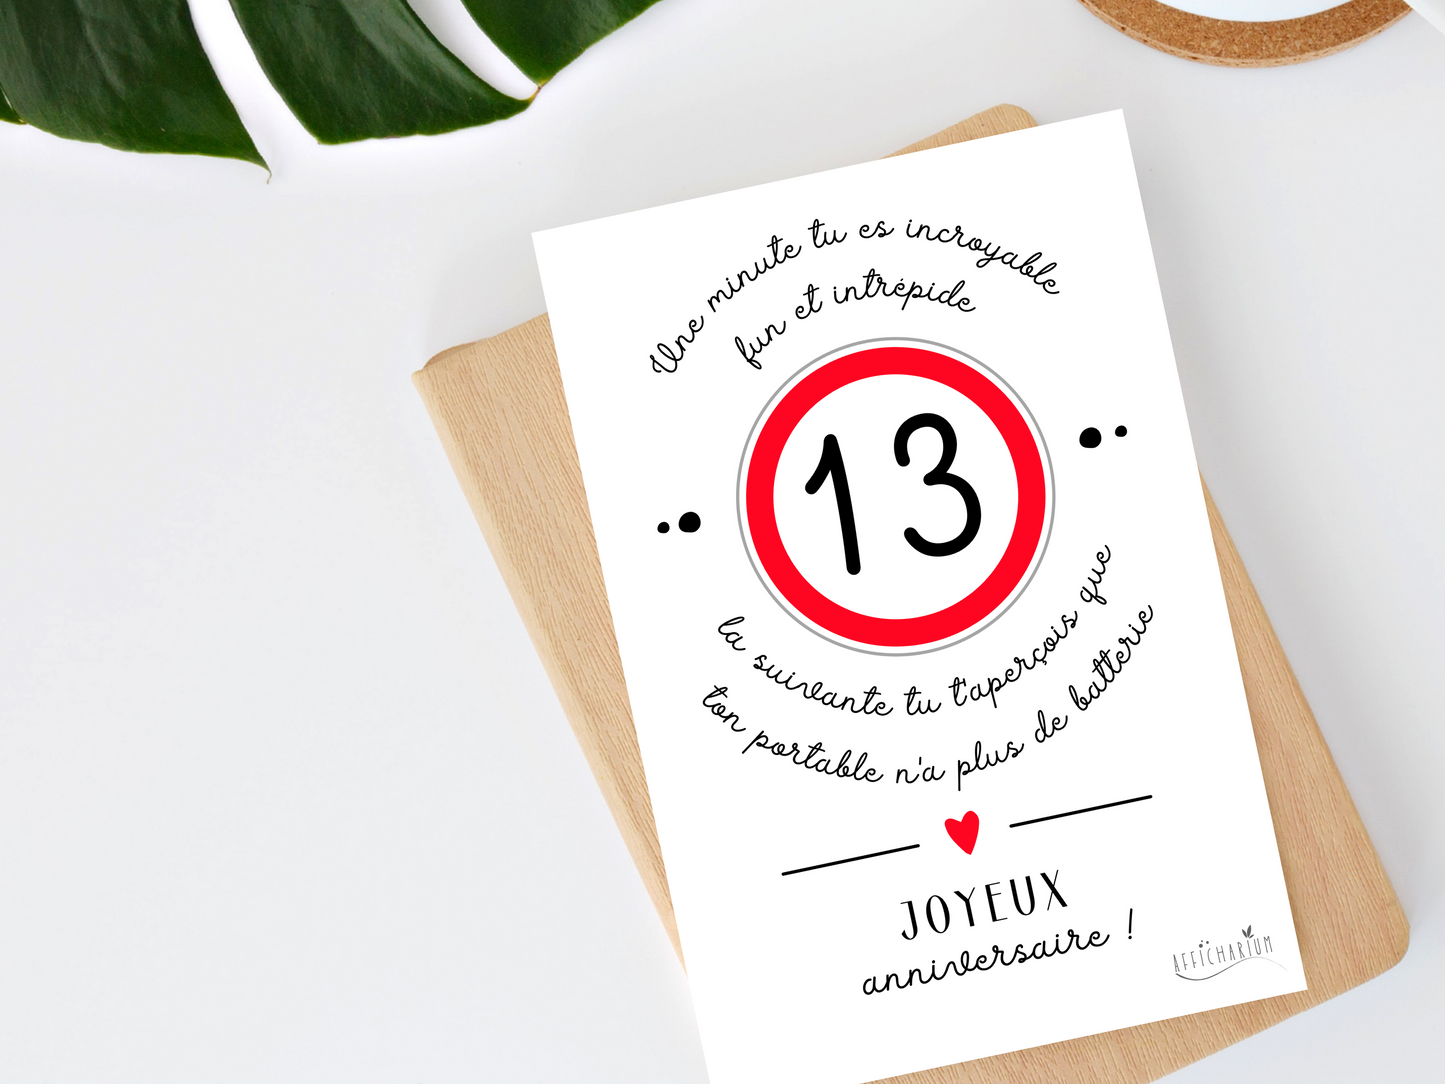 Une minute tu es incroyable
fun et intrépide
13
la suivante tu t'aperçois que
ton portable n'a plus de batterie
JOYEUX
anniversaire !
AFFICHARIUM